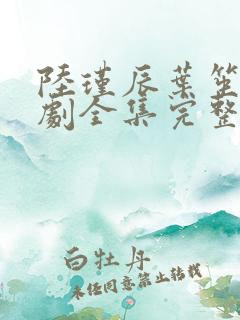 陸瑾辰葉笙
劇全集完整
白牡丹
未經同意禁止轉載